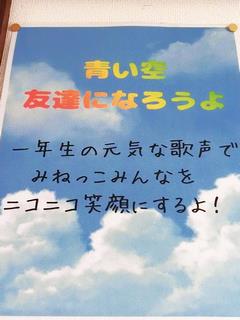 青い空
友達になろうよ
一年生の元気な歌声で
みねっこみんなを
ニコニコ笑顔にするよ!